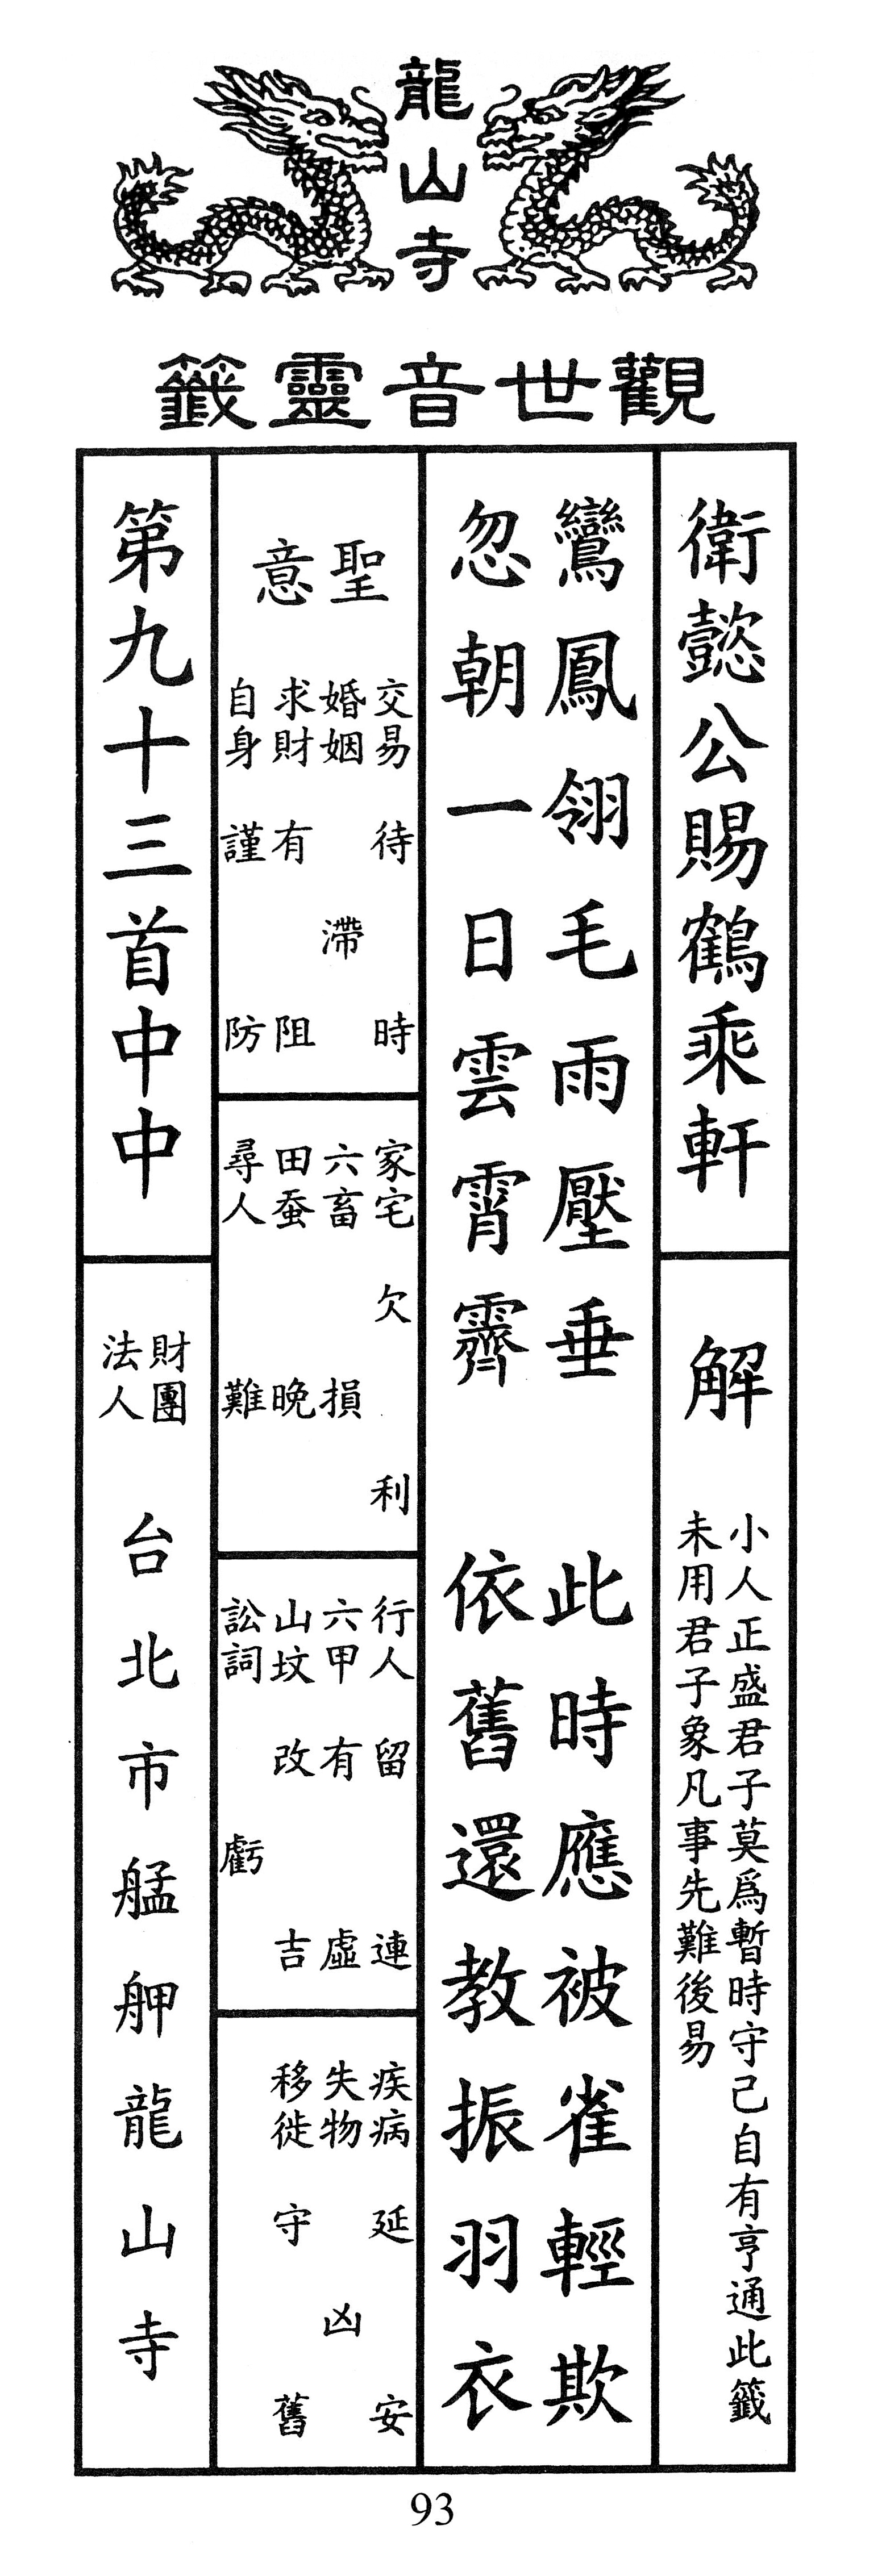 龍山寺
觀世音靈籤
衛懿公賜鶴乘軒
解
小人正盛君子莫為暫時守己自有亨通此籤
未用君子象凡事先難後易
鸞鳳翎毛雨壓垂　此時應被雀輕欺
忽朝一日雲霄霽　依舊還教振羽衣
聖意
交易 待時
婚姻 滯
求財 有阻
自身 謹防
家宅 欠利
六畜 損
田蚕 晚
尋人 難
行人 留連
六甲 有虛
山坟 改吉
訟詞 虧
疾病 延安
失物 凶
移徙 守舊
第九十三首中中
財團法人
台北市艋舺龍山寺
93